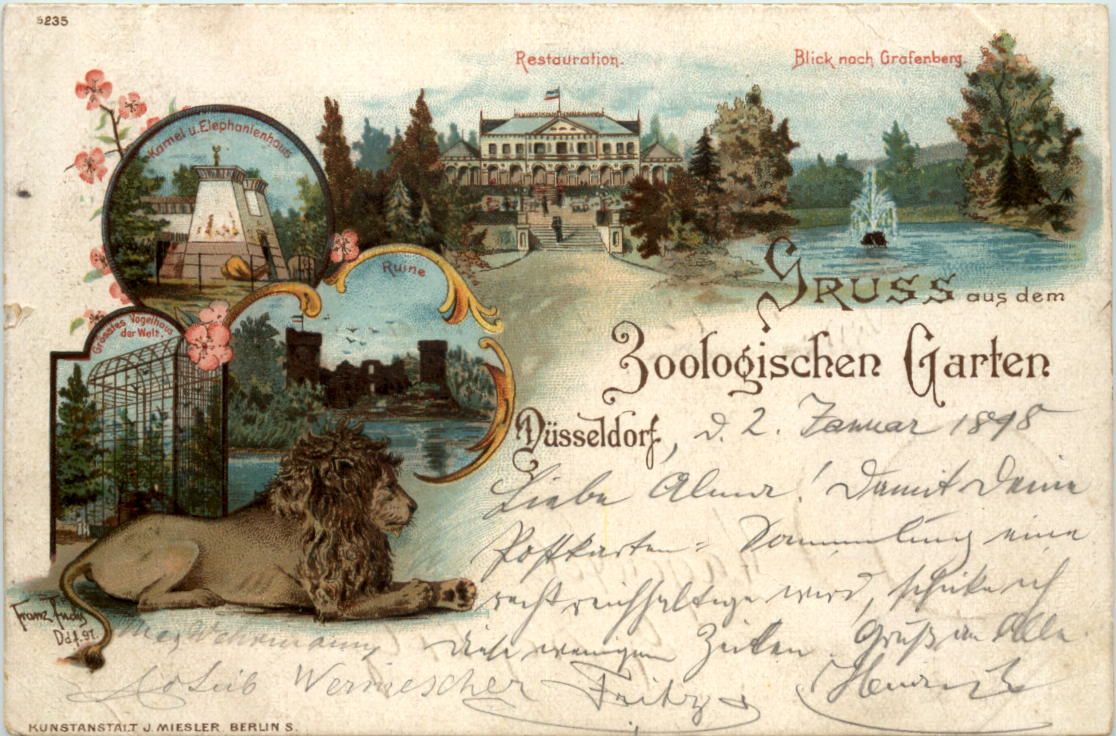 5235
Restauration.
Blick nach Grafenberg.
Kamel u. Elephantenhaus
Ruine
Grösstes Vogelhaus
der Welt.
GRUSS aus dem
Zoologischen Garten
Düsseldorf, d. 2. Januar 1898
Liebe Alma! Damit deine
Postkarten-Sammlung eine
recht reichhaltige wird, schicke ich
diese wenigen Zeilen. Gruß an Alle
Heinrich
Fritz
Franz
Ddf. 97.
KUNSTANSTALT J. MIESLER. BERLIN S.